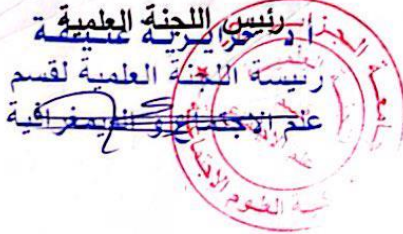 رئيس اللجنة العلمية
أ.د حرايرية عتيقة
رئيسة اللجنة العلمية لقسم
علم الاجتماع و الديمغرافية